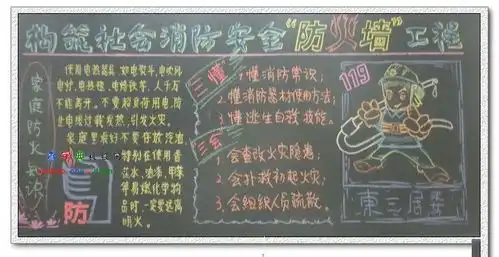 构筑社会消防安全“防火墙”工程
家庭防火知识
使用电热器具,如电熨斗,电吹风
电炉,电热毯,电烙铁等,人千万
不能离开。不要超负荷用电,防
止电线过载发热,引发火灾。
家庭里最好不要存放汽油
特别在使用香
花水,油漆,甲苯
等易燃化学物
品时,一定要远离
明火。
防
三懂
1.懂消防常识;
2.懂消防器材使用方法;
3.懂逃生自救技能。
三会
1.会查改火灾隐患;
2.会扑救初起火灾;
3.会组织人员疏散。
119
東三居委